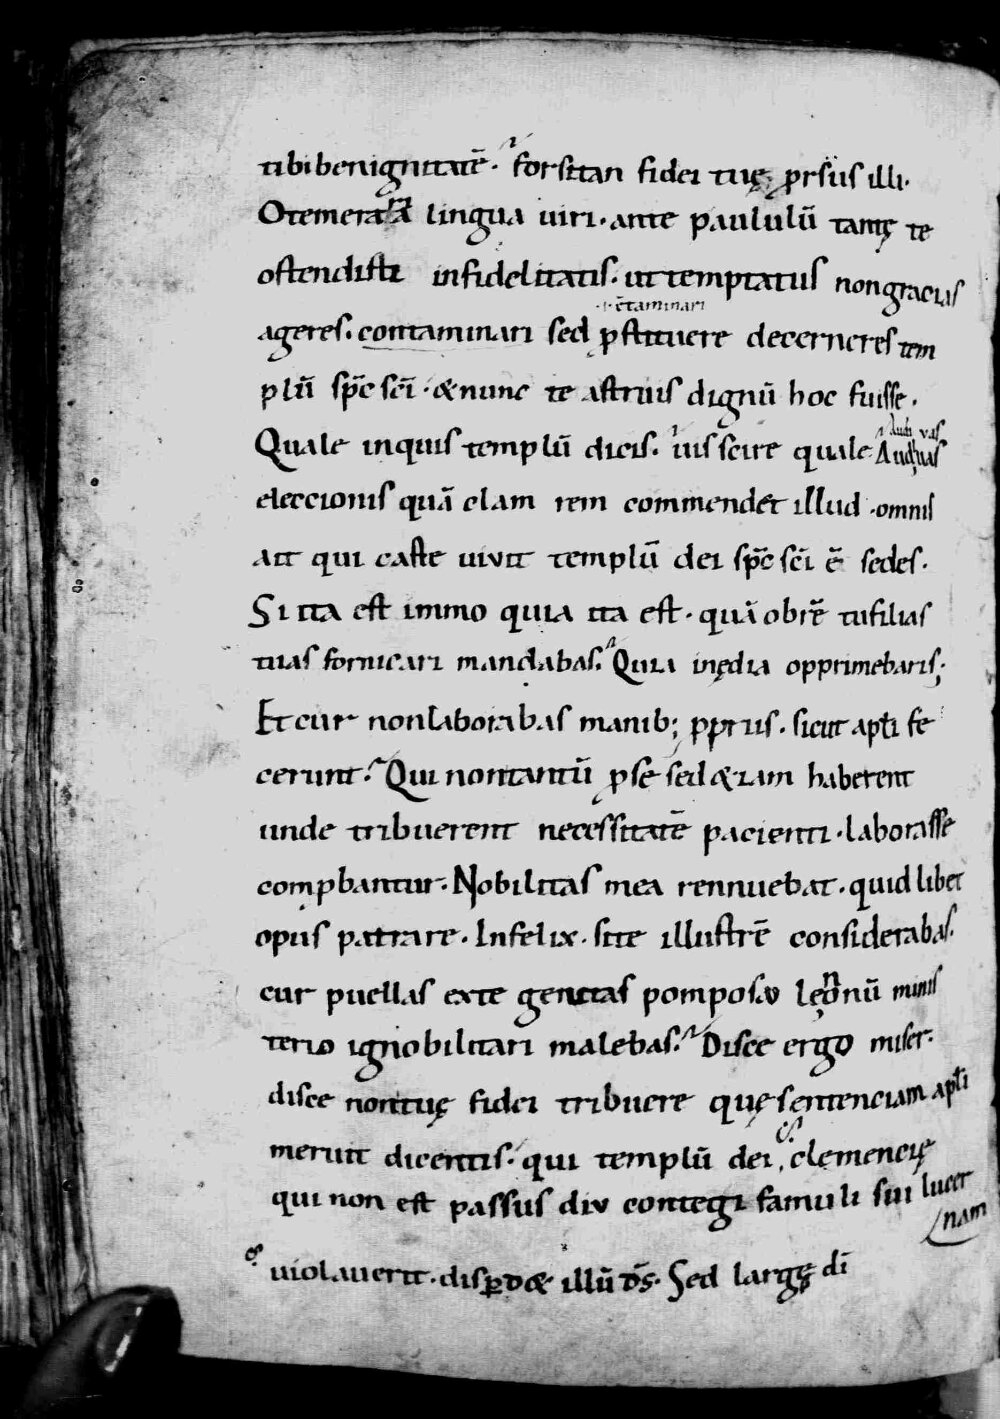 tibi benignitatē. forsitan fidei tuę; ꝓrsus illi.
O temerata lingua uiri. ante paululū tantę te
ostendisti infidelitatis. ut temptatus non gracias
c̄taminari
ageres. contaminari sed ꝓstituere decerneres tem
plū sp̄c sc̄i. & nunc te astruis dignū hoc fuisse.
Quale inquis templū dicis. uis scire quale
Audi vas
Audi uas
eleccionis quā clam rem commendet illud. omnis
ait qui caste vivit templū dei sp̄c sc̄i ē sedes.
Si ita est immo quia ita est. quā obrē tu filias
tuas fornicari mandabas. Quia inędia opprimebaris;
Et cur non laborabas manib; ꝓpriis. sicut apłi fe
cerunt. Qui non tantū ꝓ se sed & iam haberent
unde tribuerent necessitatē pacienti. laborasse
comꝓbantur. Nobilitas mea rennuebat. quid libet
opus patrare. Infelix. si te illustrē considerabas.
cur puellas ex te genitas pomposæ lęonū minis
terio ignobilitari malebas. Disce ergo miser.
disce non tuę fidei tribuere quę sentenciam apłi
meruit dicentis. qui templū dei, clemencię
qui non est passus diu contegi famuli sui lucer
nam
violaverit. disꝑd& illū d̄s. Sed largę di